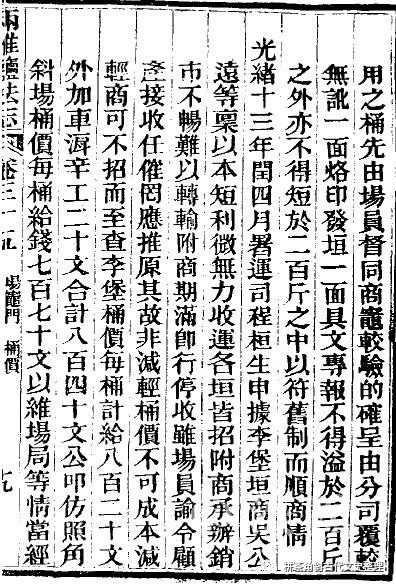 用之桶先由場員督同商竈較驗的確呈由分司覆較
無訛一面烙印發垣一面具文專報不得溢於二百斤
之外亦不得短於二百斤之中以符舊制而順商情
光緒十三年閏四月署運司程桓生申據李堡垣商吳公
遠等稟以本短利微無力收運各垣皆招附商承辦銷
市不暢難以轉輸附商期滿即行停收雖場員諭令顧
產接收任催罔應推原其故非減輕桶價不可成本減
輕商可不招而至查李堡桶價每桶計給八百二十文
外加車辛工二十文合計八百四十文公叩仿照角
斜場桶價每桶給錢七百七十文以維場局等情當經
兩淮鹽法志
場竈門 桶價